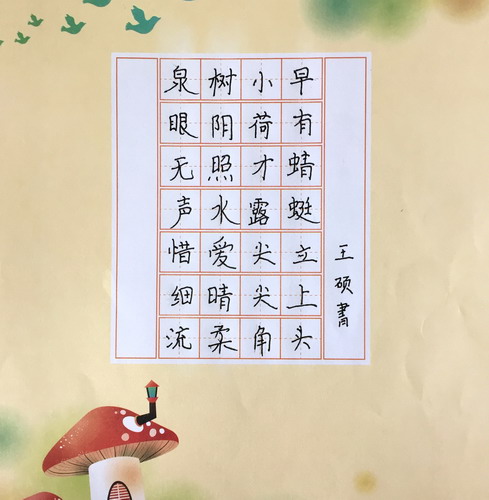 泉眼无声惜细流
树阴照水爱晴柔
小荷才露尖尖角
早有蜻蜓立上头
王硕